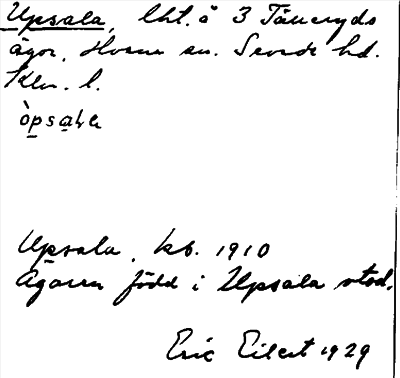 Upsala, lht. å 3 Tåueryds
ägor, Hvena sn. Sevede hd.
Klm. l.
òpsala
Upsala, kb. 1910
Ägaren född i Upsala stad.
Eric Eilert 1929